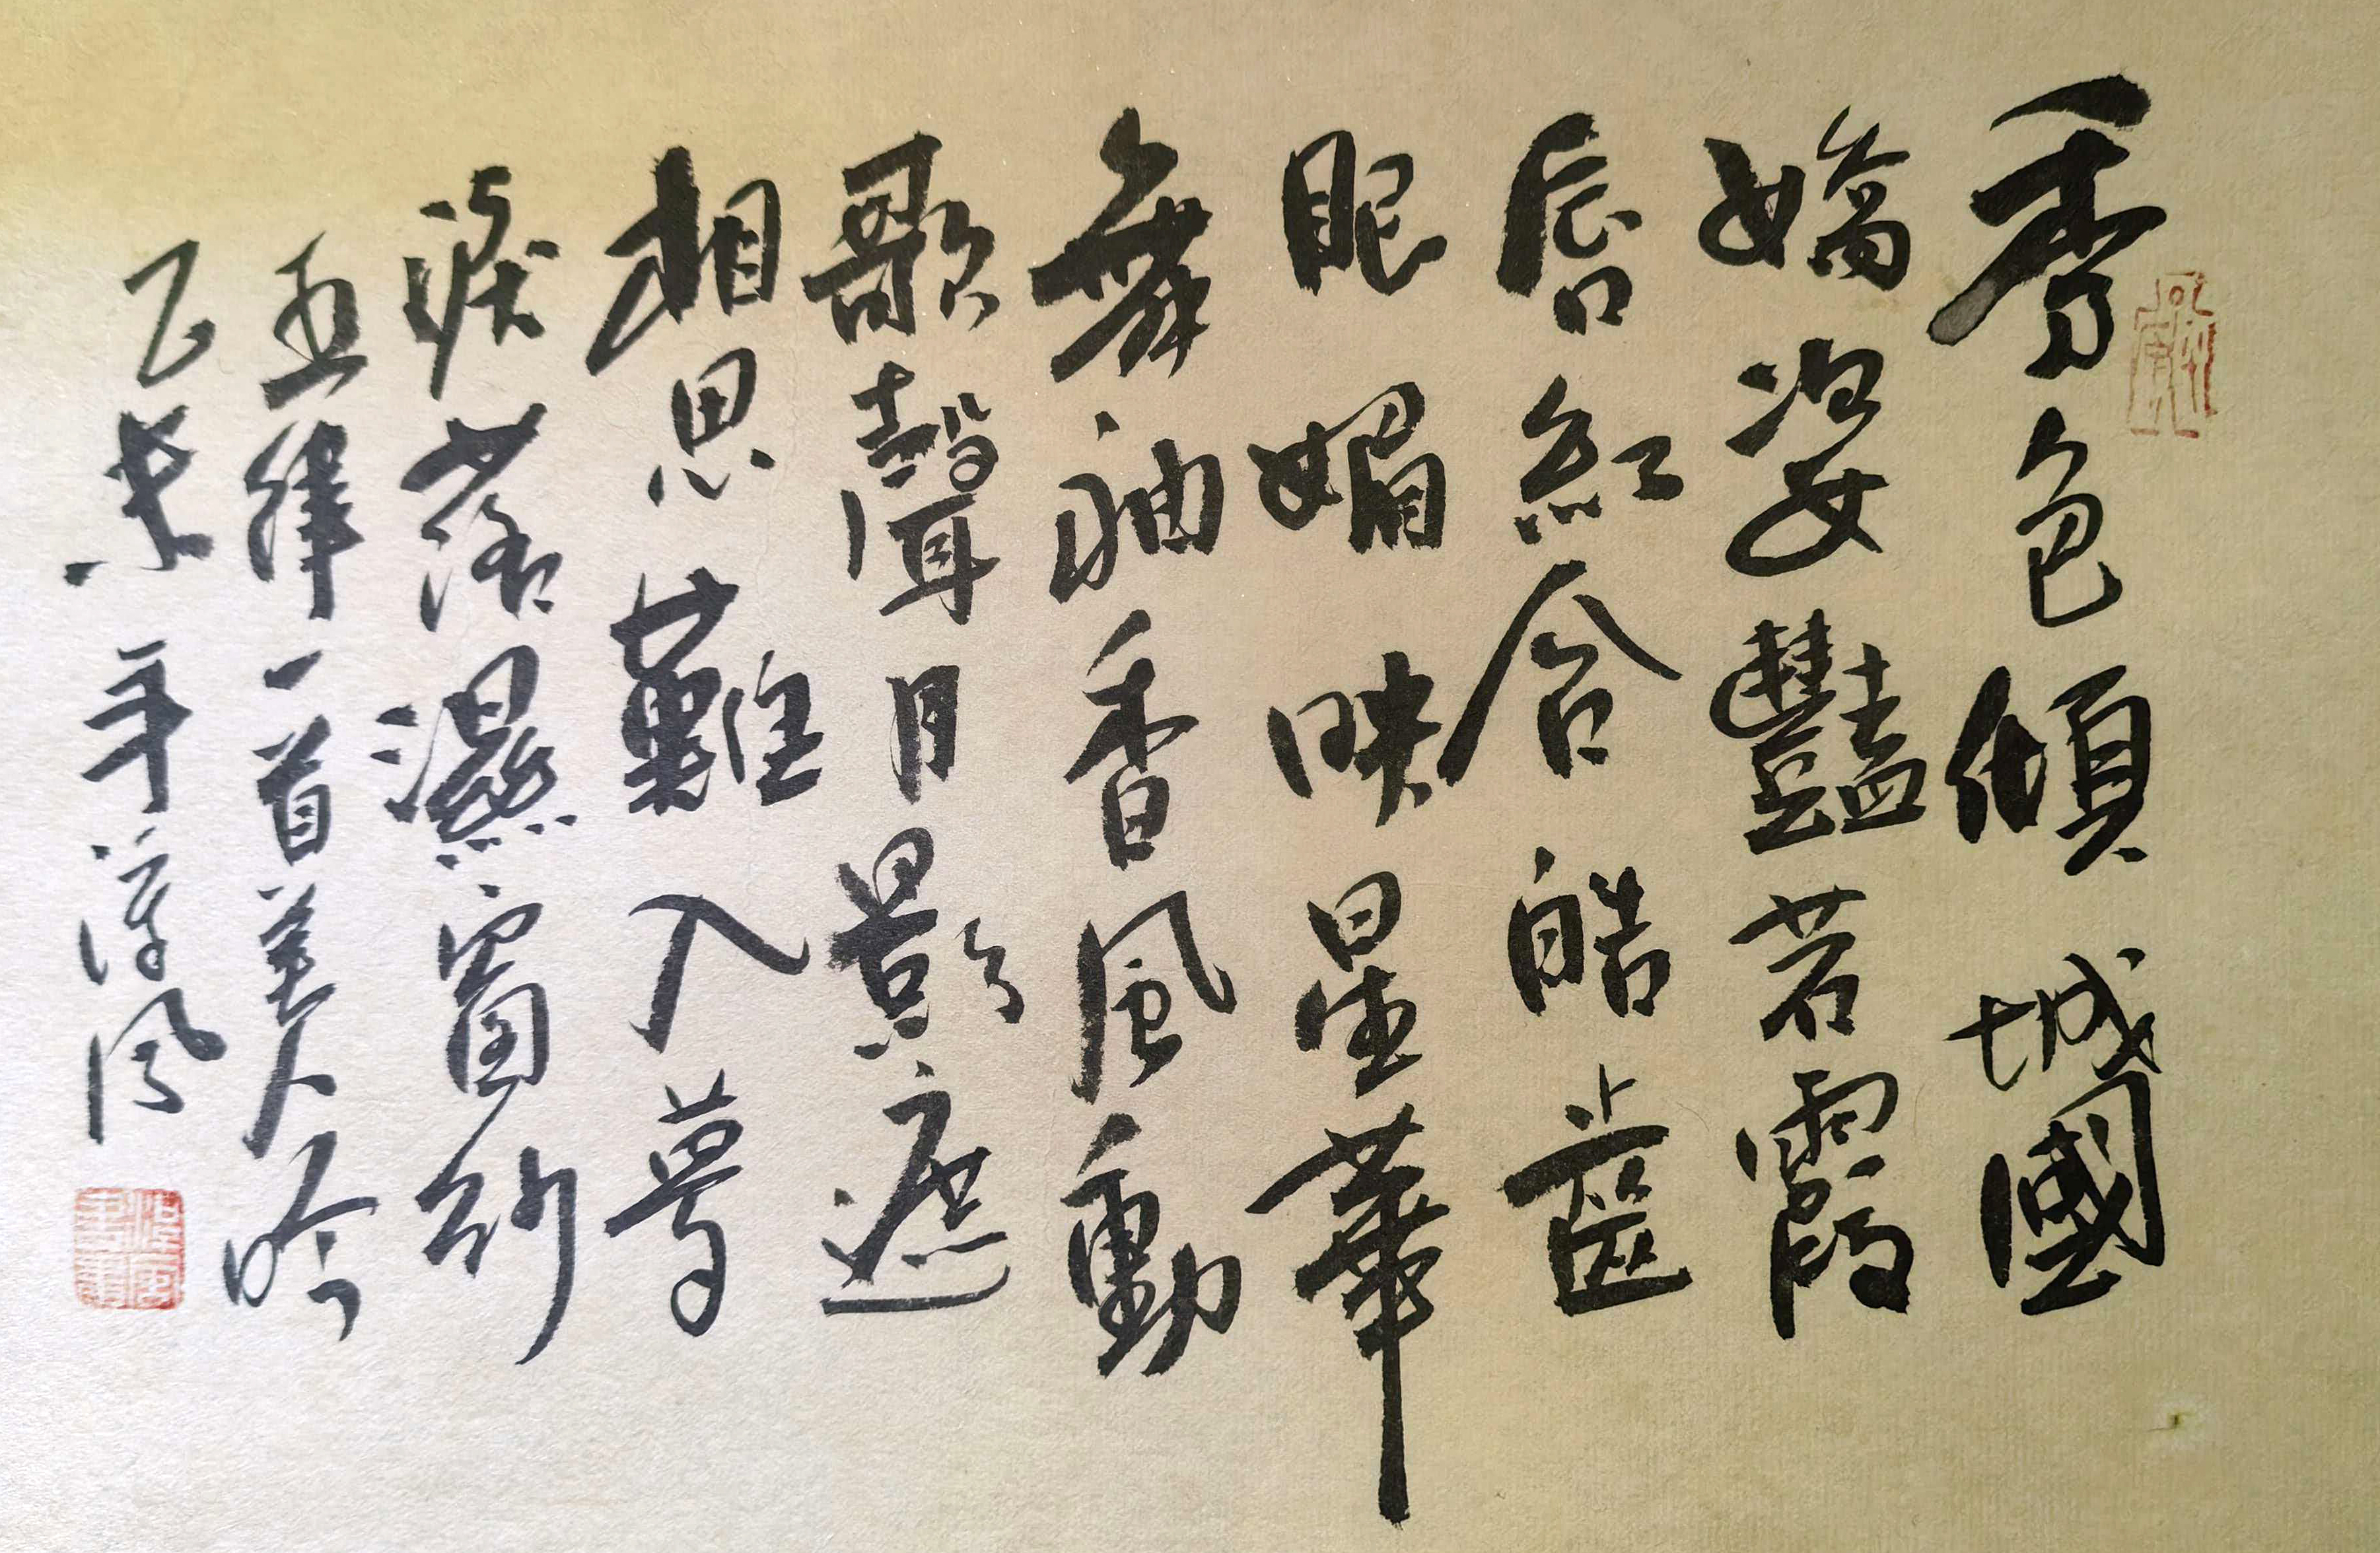 秀色傾城國
嬌姿豔若霞
唇紅含皓齒
眼媚映星華
舞袖香風動
歌聲月影遮
相思難入夢
淚落濕窗紗
五律一首美人吟
乙未年淳風